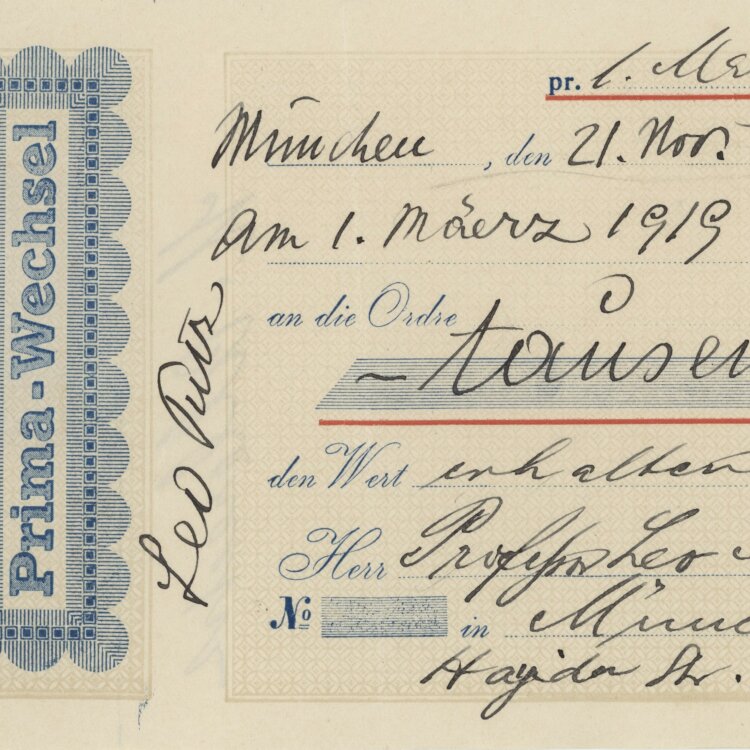 Prima-Wechsel
pr. 1. Mä
München, den 21. Nov.
am 1. Maerz 1919
an die Ordre
– tausen
den Wert erhalten
Herr Professor Leo
No in Münc
Haydn Str.
Leo Putz